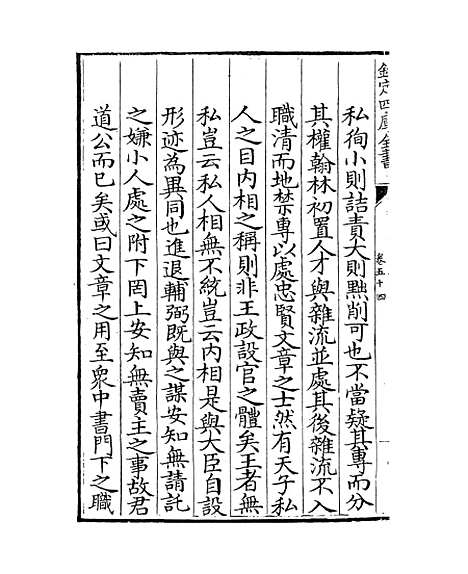 欽定四庫全書
卷五十四
私徇小則詰責大則黜削可也不當疑其專而分
其權翰林初置人才與雜流並處其後雜流不入
職清而地禁專以處忠賢文章之士然有天子私
人之目内相之稱則非王政設官之體矣王者無
私豈云私人相無不統豈云内相是與大臣自設
形迹為異同也進退輔弼既與之謀安知無請託
之嫌小人處之附下罔上安知無賣主之事故君
道公而已矣或曰文章之用至衆中書門下之職